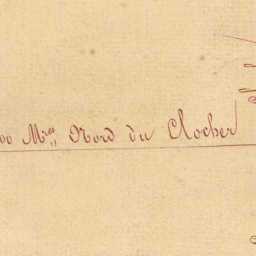 00 M.res Nord du Clocher